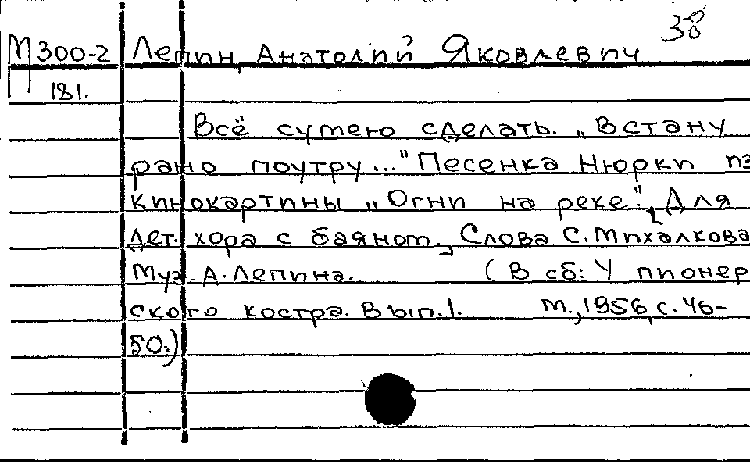 30
М300-2 Лепин, Анатолий Яковлевич
181.
Всё сумею сделать. „Встану
рано поутру..." Песенка Нюрки из
кинокартины „Огни на реке". Для
дет. хора с баяном. Слова С. Михалкова
Муз. А. Лепина. (В сб: У пионер
ского костра. Вып. 1. М., 1956, с. 46-
50.)